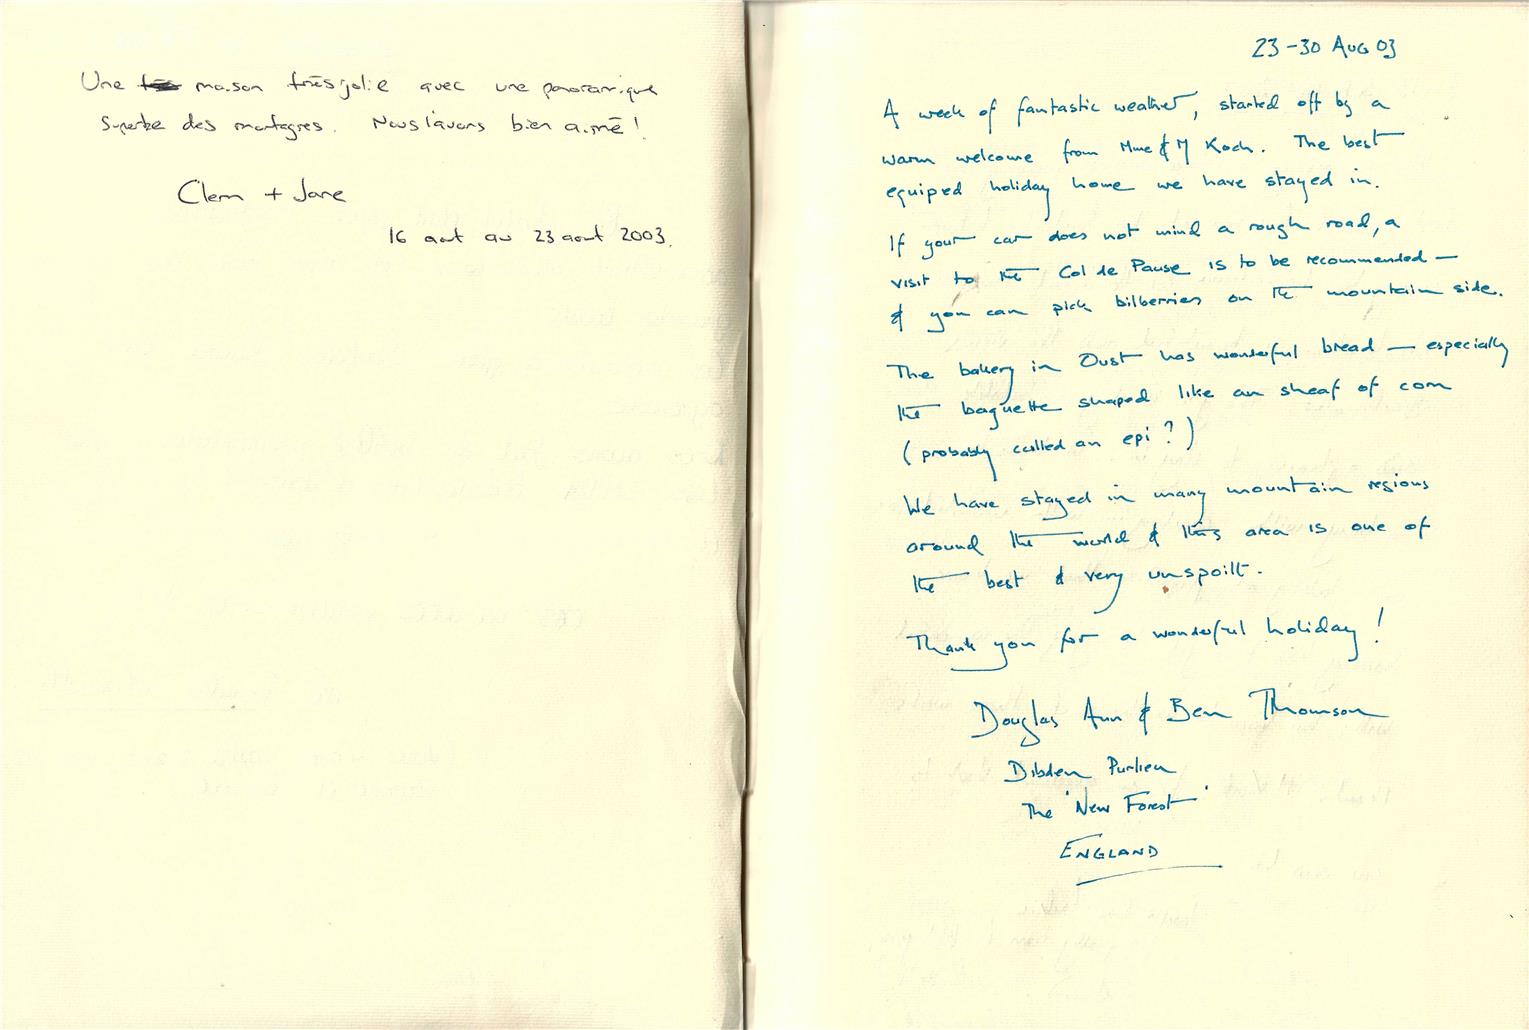 Une maison très jolie avec une panoramique
superbe des montagnes. Nous l'avons bien aimé!
Clem + Jane
16 aout au 23 aout 2003.
23-30 Aug 03
A week of fantastic weather, started off by a
warm welcome from Mme & M Koch. The best
equiped holiday home we have stayed in.
If your car does not mind a rough road, a
visit to the Col de Pause is to be recommended —
& you can pick bilberries on the mountain side.
The bakery in Oust has wonderful bread — especially
the baguette shaped like an sheaf of corn
(probably called an epi?)
We have stayed in many mountain regions
around the world & this area is one of
the best & very unspoilt.
Thank you for a wonderful holiday!
Douglas Ann & Ben Thomson
Dibden Purlieu
The 'New Forest'
ENGLAND